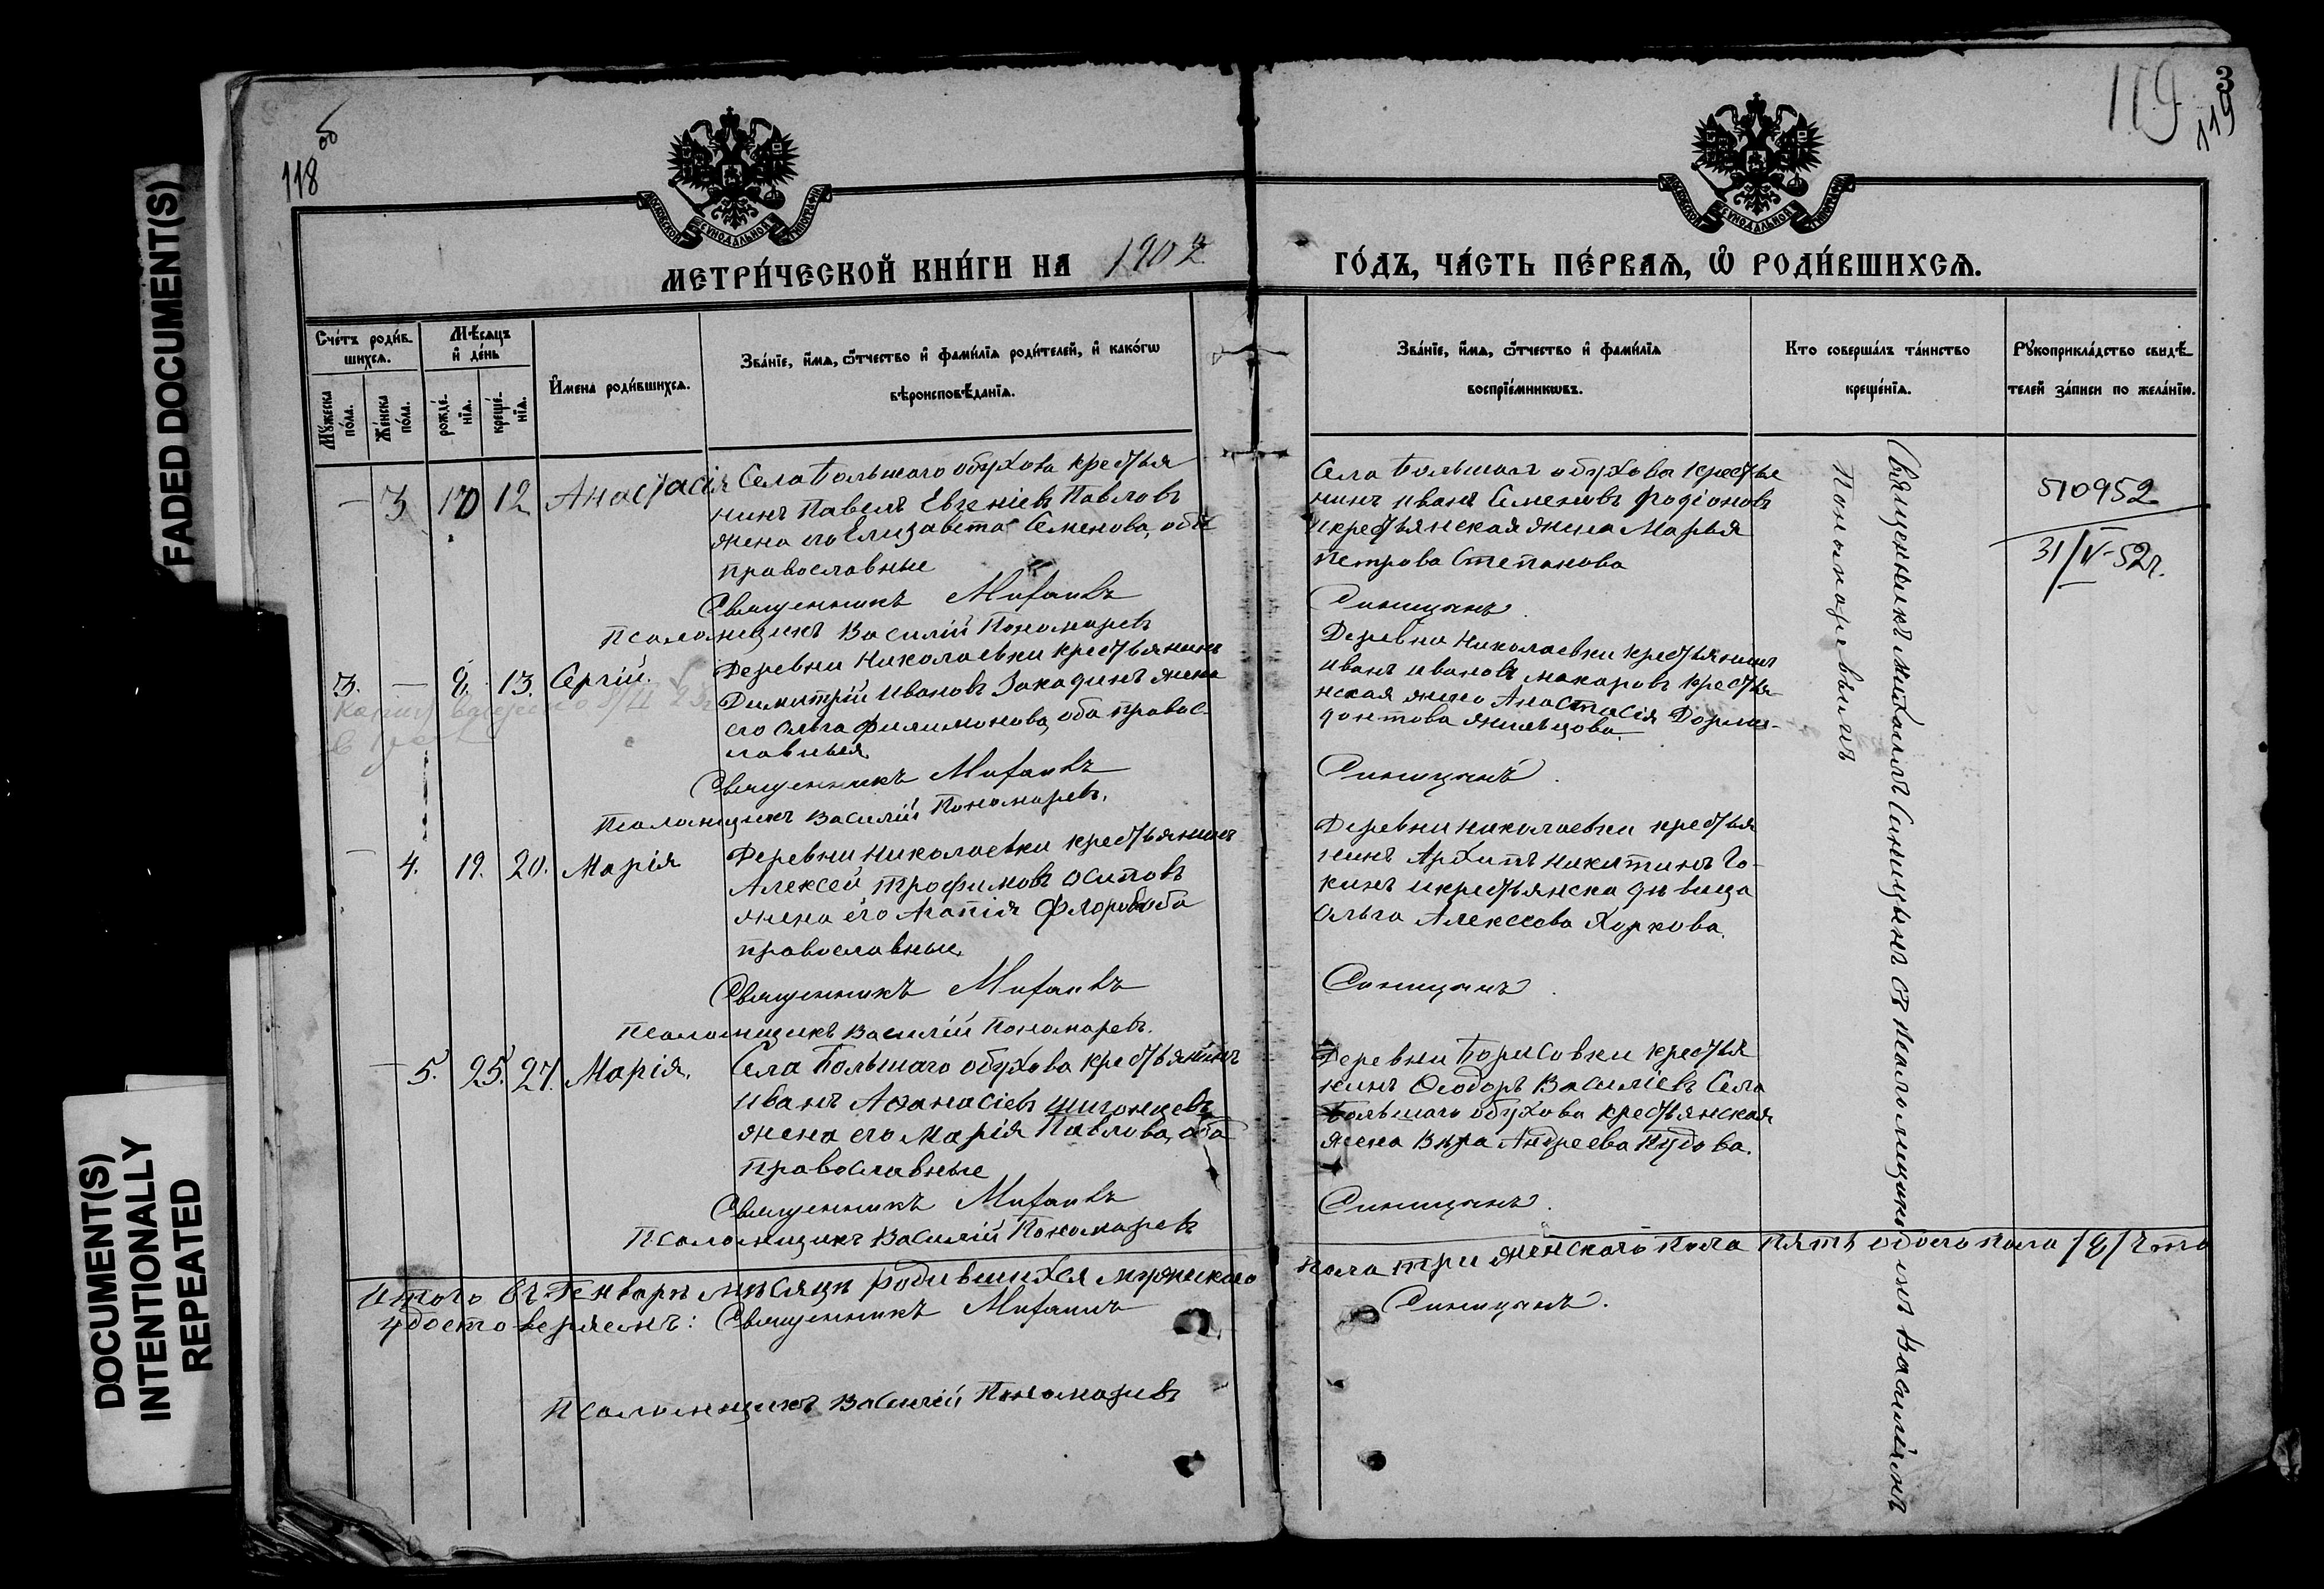 FADED DOCUMENT(S)
DOCUMENT(S)
INTENTIONALLY
REPEATED
118 об
119
3
119
МОСКОВСКОЙ СѴНОДАЛЬНОЙ ТИПОГРАФІИ
МОСКОВСКОЙ СѴНОДАЛЬНОЙ ТИПОГРАФІИ
МЕТРИ́ЧЕСКОЙ КНИ́ГИ НА 1902
ГО́ДЪ, ЧА́СТЬ ПЕ́РВАѦ, Ѡ РОДИ́ВШИХСѦ.
Сче́тъ роди́в-
шихсѧ.
Мꙋ́жеска по́ла.
Же́нска по́ла.
Мѣ́сѧцъ
и де́нь
рожде́-
нїѧ.
креще́-
нїѧ.
И҆мена роди́вшихсѧ.
Зва́нїе, и҆́мѧ, ѻ҆́тчество и҆ фами́лїѧ роди́телей, и҆ како́гѡ
вѣроисповѣ́данїѧ.
Зва́нїе, и҆́мѧ, ѻ҆́тчество и҆ фами́лїѧ
воспрїе́мникѡвъ.
Кто соверша́лъ та́инство
креще́нїѧ.
Рꙋкоприкла́дство свидѣ́-
телей за́писи по жела́нїю.
— 3 10 12 Анастасія
Села Большаго обухова крестья
нинъ Павелъ Евгеніевъ Павловъ
жена его Елизавета Семенова, оба
православные
Священникъ Михаилъ
Псаломщикъ Василій Пономаревъ
Села Большаго обухова крестья
нинъ иванъ Семеновъ Родіоновъ
икрестьянская жена Марья
Петрова Степанова
Синицынъ
510952
31/IV-52г.
3. — 8. 13. Сергій.
Деревни Николаевки крестьянинъ
Димитрій Ивановъ Закадинъ жена
его Ольга Филимонова, оба правос-
лавныя
Священникъ Михаилъ
Псаломщикъ Василій Пономаревъ.
Деревни Николаевки крестьянинъ
иванъ ивановъ макаровъ крестья-
нская жена Анастасія Дорме-
донтова
Синицынъ.
— 4. 19. 20. Марія
Деревни Николаевки крестьянинъ
Алексей трофимовъ осиповъ
жена его Агапія Флорова оба
православные
Священникъ Михаилъ
Псаломщикъ Василій Пономаревъ.
Деревни николаевки крестья
нинъ Архипъ никитинъ Го-
кинъ икрестьянска дѣвица
Ольга Алексеева Хоркова.
Синицынъ.
— 5. 25. 27. Марія.
Села Большаго обухова крестьянинъ
иванъ Аѳанасіевъ Шигонцевъ
жена его Марія Павлова, оба
православные
Священникъ Михаилъ
Псаломщикъ Василій Пономаревъ
Деревни Борисовки крестья
нинъ Ѳеодоръ Василіевъ Села
Большаго обухова крестьянская
жена Вѣра Андреева Кудова.
Синицынъ.
Священникъ михаилъ Синицынъ съ псаломщикомъ василіемъ
Пономаревымъ
Итого въ Генварѣ мѣсяцѣ родившихся мужскаго
пола три женскаго пола пять обоего пола /8/ что
удостоверяемъ: Священникъ Михаилъ
Синицынъ.
Псаломщикъ Василій Пономаревъ